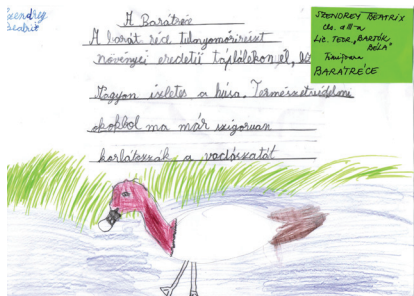 Szendrey
Beatrix
A Barátréce
A barát réce tulnyomórészt
növényi eredetü táplálékon él,
Nagyon izletes a húsa. Természetvédelmi
okokbol ma már szigoruan
korlátozzák a vadászatát
SZENDREY BEATRIX
cls. a III-a
LIC. TEOR. „BARTÓK
BÉLA”
Timișoara
BARÁTRÉCE